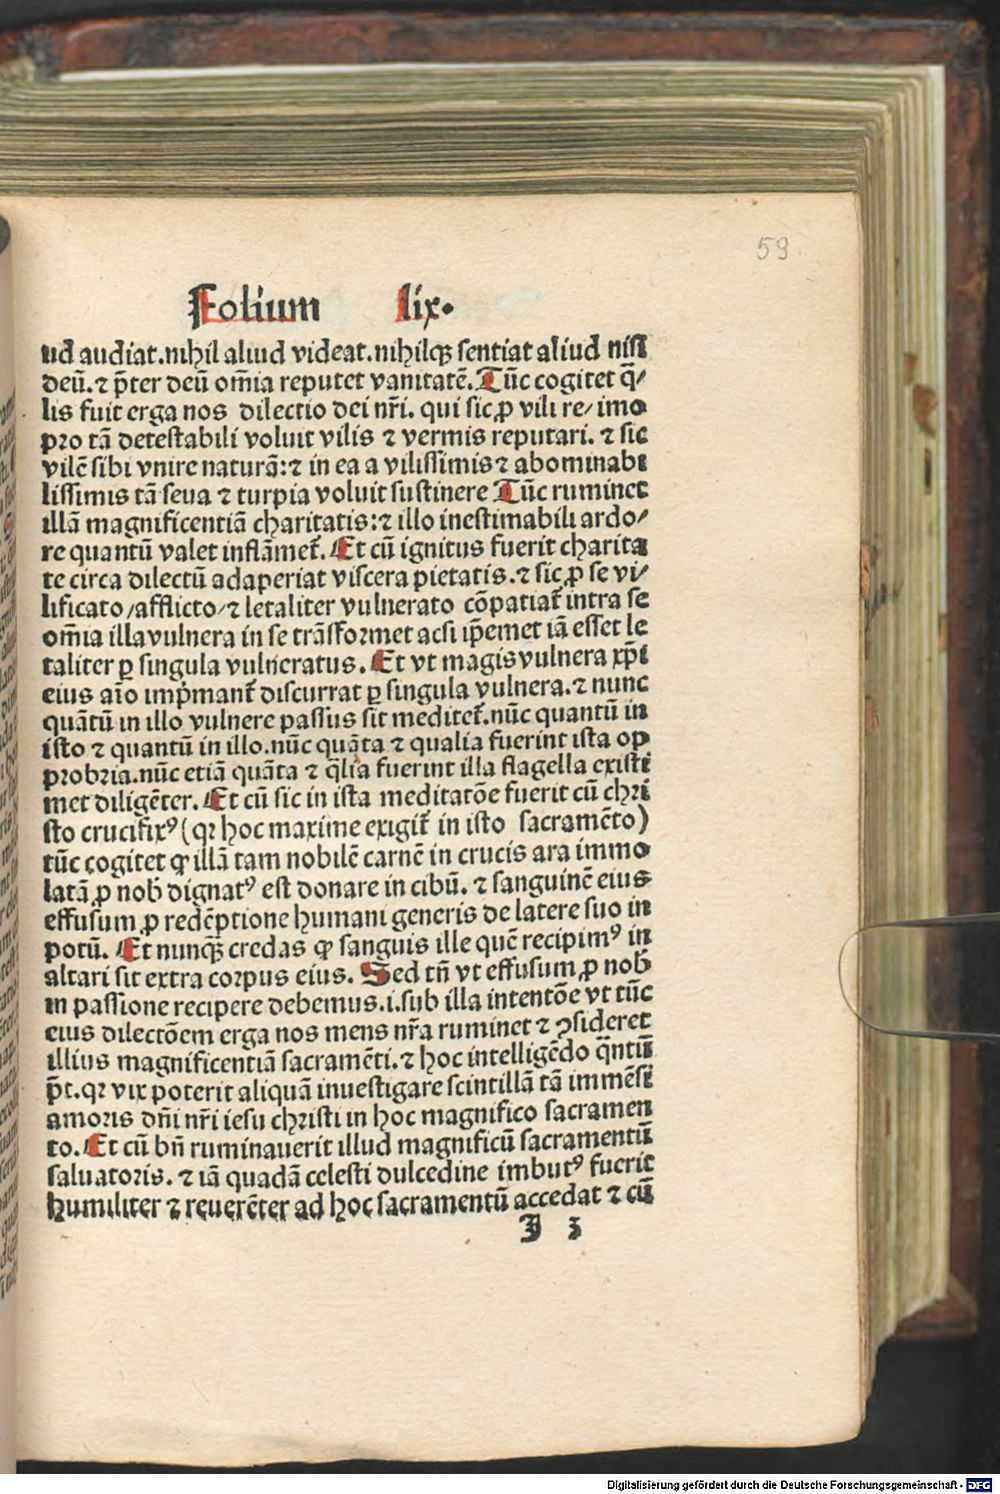 59.
Folium lix.
ud audiat. nihil aliud videat. nihilqꝫ sentiat aliud nisi
deū. ⁊ p̄ter deū om̄ia reputet vanitatē. Tūc cogitet q̄⸗
lis fuit erga nos dilectio dei nr̄i. qui sic ꝓ vili re/ imo
pro tā detestabili voluit vilis ⁊ vermis reputari. ⁊ sic
vilē sibi vnire naturā: ⁊ in ea a vilissimis ⁊ abominabi
lissimis tā seua ⁊ turpia voluit sustinere Tūc ruminet
illā magnificentiā charitatis: ⁊ illo inestimabili ardo⸗
re quantū valet inflāmet᷑. Et cū ignitus fuerit charita
te circa dilectū adaperiat viscera pietatis. ⁊ sic ꝓ se vi⸗
lificato/afflicto/⁊ letaliter vulnerato cōpatiat᷑ intra se
om̄ia illa vulnera in se trāsformet acsi ip̄emet iā esset le
taliter ꝑ singula vulneratus. Et vt magis vulnera xp̄i
eius aīo imp̄mant᷑ discurrat ꝑ singula vulnera. ⁊ nunc
quātū in illo vulnere passus sit meditet᷑. nūc quantū in
isto ⁊ quantū in illo. nūc quāta ⁊ qualia fuerint ista op
probria. nūc etiā quāta ⁊ q̄lia fuerint illa flagella existi
met diligēter. Et cū sic in ista meditatōe fuerit cū chri
sto crucifixꝰ (qꝛ hoc maxime exigit᷑ in isto sacramēto)
tūc cogitet ꝙ illā tam nobilē carnē in crucis ara immo
latā ꝓ nob̄ dignatꝰ est donare in cibū. ⁊ sanguinē eius
effusum ꝓ redēptione humani generis de latere suo in
potū. Et nunqꝫ̄ credas ꝙ sanguis ille quē recipimꝰ in
altari sit extra corpus eius. Sed tn̄ vt effusum ꝓ nob̄
in passione recipere debemus. i. sub illa intentōe vt tūc
eius dilectōem erga nos mens nr̄a ruminet ⁊ ꝯsideret
illius magnificentiā sacramēti. ⁊ hoc intelligēdo q̄ntū
p̄t. qꝛ vix poterit aliquā inuestigare scintillā tā immēsi
amoris dn̄i nr̄i iesu christi in hoc magnifico sacramen
to. Et cū bn̄ ruminauerit illud magnificū sacramentū
saluatoris. ⁊ iā quadā celesti dulcedine imbutꝰ fuerit
humiliter ⁊ reuerēter ad hoc sacramentū accedat ⁊ cū
J 3
Digitalisierung gefördert durch die Deutsche Forschungsgemeinschaft - DFG